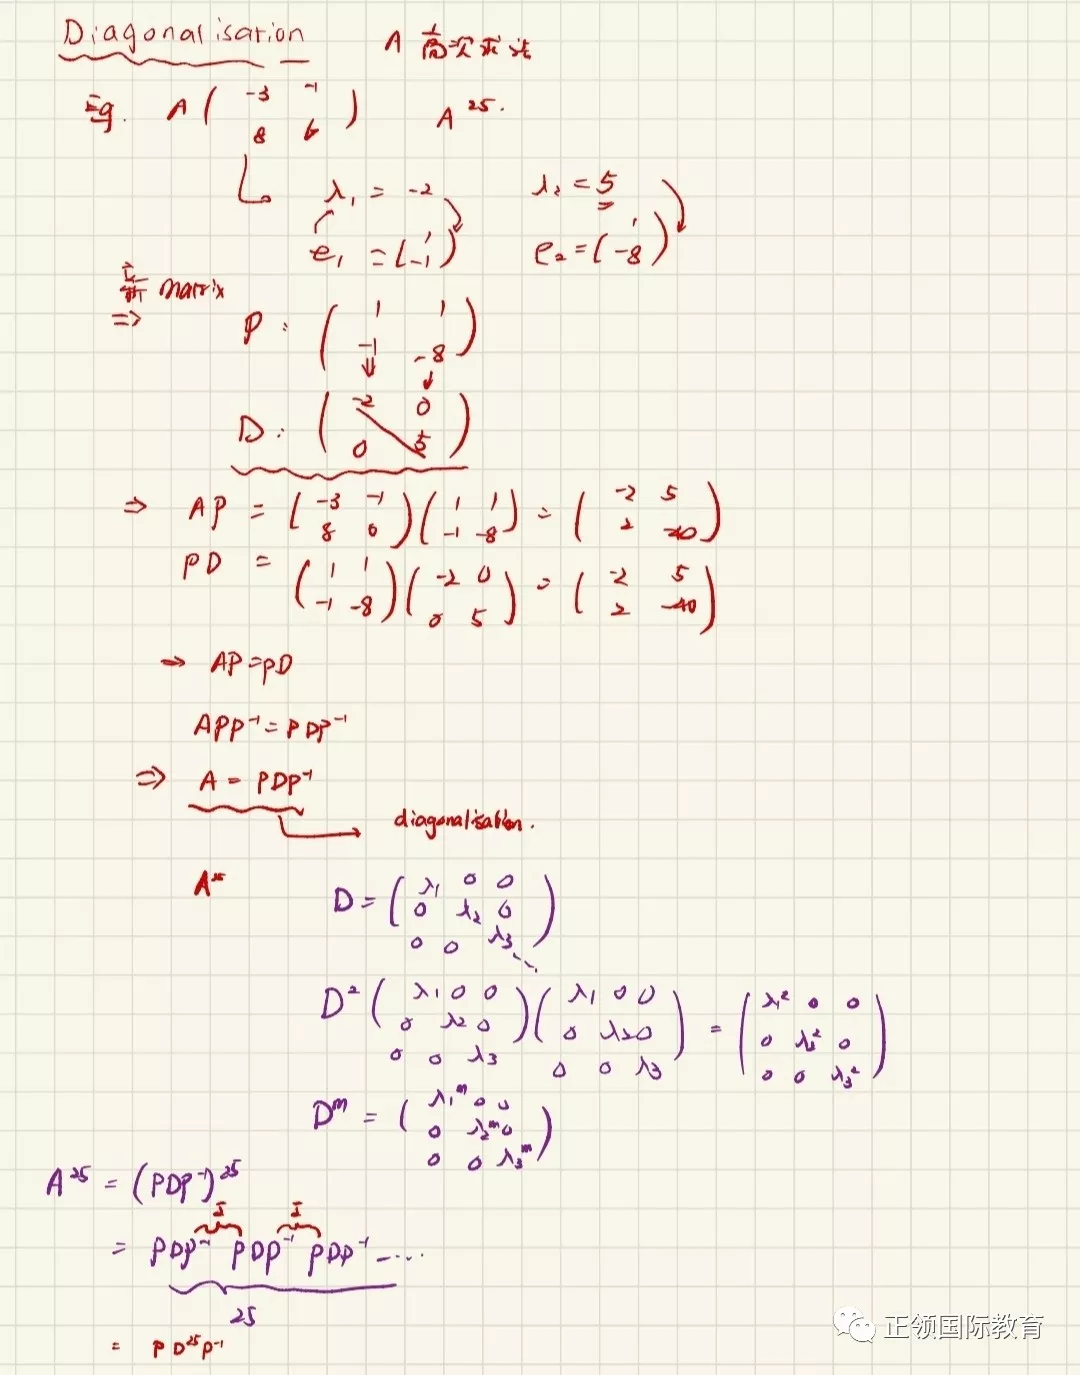 Diagonalisation A 高次求法
Eg. A ( -3 -1 ) A^25.
8 6
λ₁ = -2 λ₂ = 5
e₁ = ( 1 -1 ) e₂ = ( 1 -8 )
新 matrix
⇒ P : ( 1 1
-1 -8 )
D : ( -2 0
0 5 )
⇒ AP = ( -3 -1 ) ( 1 1 ) = ( -2 5 )
8 0 -1 -8 2 -40
PD = ( 1 1 ) ( -2 0 ) = ( -2 5 )
-1 -8 0 5 2 -40
→ AP = PD
APP⁻¹ = PDP⁻¹
⇒ A = PDP⁻¹
diagonalisation.
A^25
D = ( λ₁ 0 0
0 λ₂ 0
0 0 λ₃ )
D² ( λ₁ 0 0 ) ( λ₁ 0 0 ) = ( λ₁² 0 0 )
0 λ₂ 0 0 λ₂ 0 0 λ₂² 0
0 0 λ₃ 0 0 λ₃ 0 0 λ₃²
D^m = ( λ₁^m 0 0
0 λ₂^m 0
0 0 λ₃^m )
A^25 = (PDP⁻¹)^25
I I
= PDP⁻¹ PDP⁻¹ PDP⁻¹ ⋯
25
= PD^25P⁻¹
正领国际教育